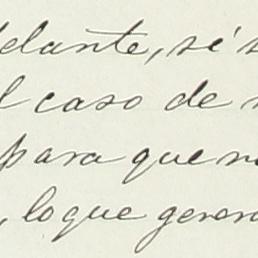 delante, sé s
l caso de
para que n
, lo que gener